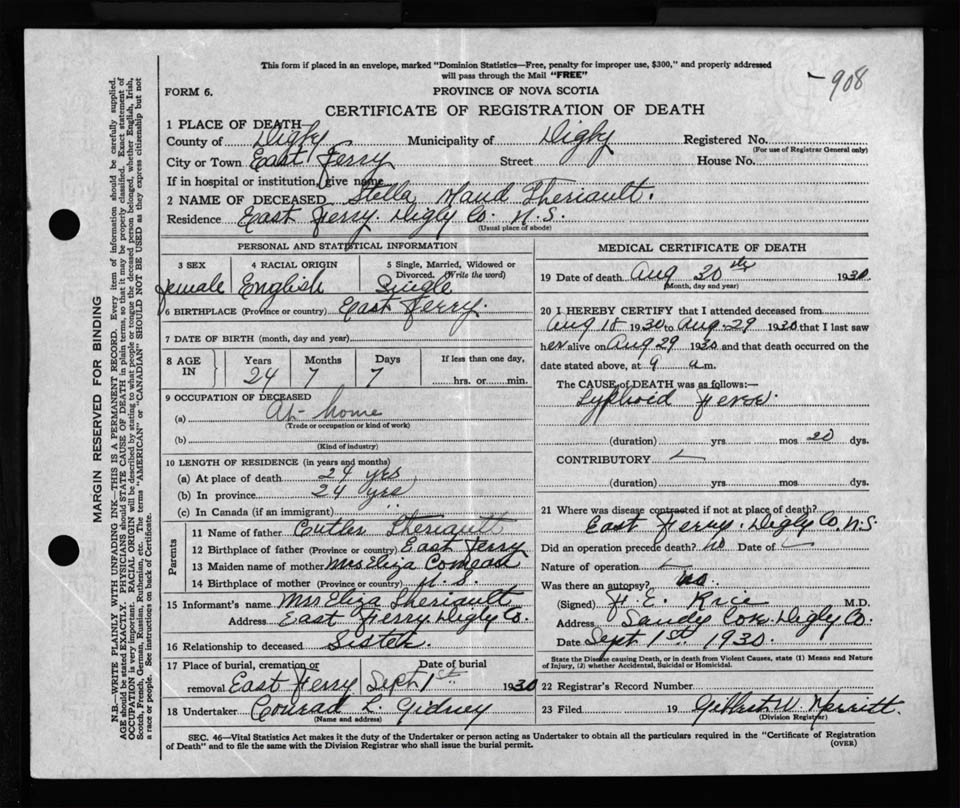 This form if placed in an envelope, marked "Dominion Statistics—Free, penalty for improper use, $300," and properly addressed
will pass through the Mail "FREE"
- 908
FORM 6.
PROVINCE OF NOVA SCOTIA
CERTIFICATE OF REGISTRATION OF DEATH
1 PLACE OF DEATH—
County of Digby Municipality of Digby Registered No.
(For use of Registrar General only)
City or Town East Ferry Street House No.
If in hospital or institution, give name
2 NAME OF DECEASED Stella Maud Theriault.
Residence East Ferry. Digby Co. N.S.
(Usual place of abode)
PERSONAL AND STATISTICAL INFORMATION
3 SEX 4 RACIAL ORIGIN 5 Single, Married, Widowed or
Divorced. (Write the word)
female English Single
6 BIRTHPLACE (Province or country) East Ferry.
7 DATE OF BIRTH (month, day and year)
8 AGE IN Years Months Days If less than one day,
24 7 7 hrs. or min.
9 OCCUPATION OF DECEASED
(a) At- home
(Trade or occupation or kind of work)
(b)
(Kind of industry)
10 LENGTH OF RESIDENCE (in years and months)
(a) At place of death 24 yrs
(b) In province 24 yrs
(c) In Canada (if an immigrant)
Parents
11 Name of father Cutler Theriault
12 Birthplace of father (Province or country) East Ferry
13 Maiden name of mother Mrs Eliza Comeau
14 Birthplace of mother (Province or country) N. S.
15 Informant's name Mrs Eliza Theriault
Address East Ferry. Digby Co.
16 Relationship to deceased Sister.
17 Place of burial, cremation or Date of burial
removal East Ferry Sept 1st 1930
18 Undertaker Conrad L. Gidney
(Name and address)
MEDICAL CERTIFICATE OF DEATH
19 Date of death Aug 30th 1930
(Month, day and year)
20 I HEREBY CERTIFY that I attended deceased from
Aug 18 1930 to Aug-29 1930 that I last saw
her alive on Aug 29 1930 and that death occurred on the
date stated above, at 9 a.m.
The CAUSE of DEATH was as follows:—
Typhoid Fever.
(duration) yrs. mos 20 dys.
CONTRIBUTORY
(duration) yrs. mos. dys.
21 Where was disease contracted if not at place of death?
East Ferry. Digby Co. N.S.
Did an operation precede death? no Date of
Nature of operation
Was there an autopsy? No.
(Signed) F. E. Rice M.D.
Address Sandy Cove Digby Co.
Date Sept 1st 1930.
State the Disease causing Death, or in death from Violent Causes, state (1) Means and Nature
of Injury, (2) whether Accidental, Suicidal or Homicidal.
22 Registrar's Record Number
23 Filed 19 Gilbert W. Merritt.
(Division Registrar)
SEC. 46—Vital Statistics Act makes it the duty of the Undertaker or person acting as Undertaker to obtain all the particulars required in the "Certificate of Registration
of Death" and to file the same with the Division Registrar who shall issue the burial permit.
(OVER)
MARGIN RESERVED FOR BINDING
N.B.—WRITE PLAINLY WITH UNFADING INK—THIS IS A PERMANENT RECORD. Every item of information should be carefully supplied.
AGE should be stated EXACTLY. PHYSICIANS should STATE CAUSE OF DEATH in plain terms, so that it may be properly classified. Exact statement of
OCCUPATION is very important. RACIAL ORIGIN will be described by stating to what people or tongue the deceased person belonged, whether English, Irish,
Scotch, French, German, Russian, Ruthenian, etc. The terms "AMERICAN" or "CANADIAN" SHOULD NOT BE USED as they express citizenship but not
a race or people. See instructions on back of Certificate.